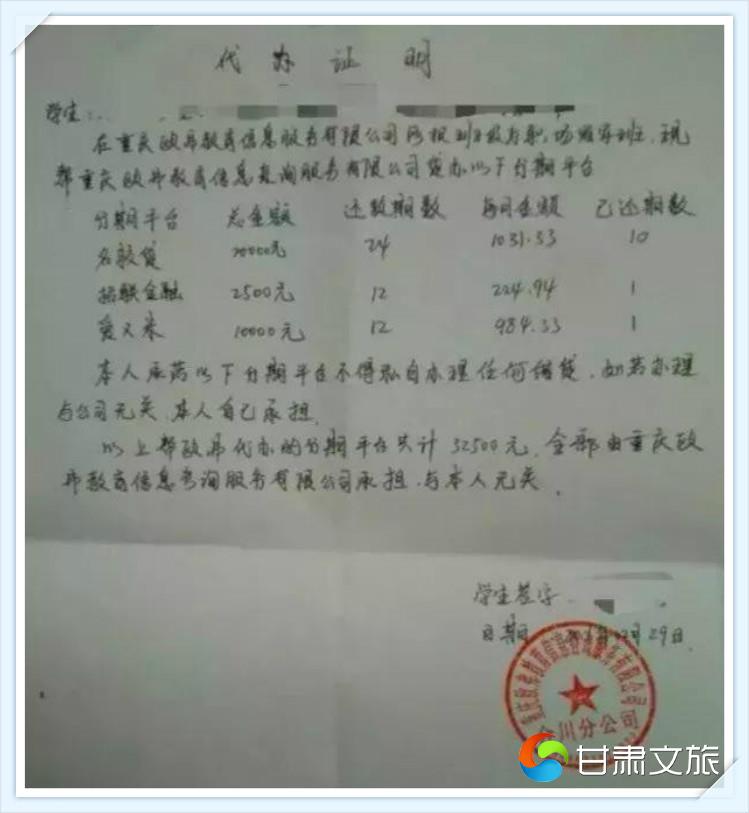 代办证明
学生:
在重庆欧帝教育信息服务有限公司 班 职场 班,现
帮重庆欧帝教育信息咨询服务有限公司贷办以下分期平台
分期平台 总金额 还款期数 每月金额 已还期数
名校贷 20000元 24 1031.33 10
招联金融 2500元 12 224.94 1
爱又米 10000元 12 984.33 1
本人承诺以下分期平台不得私自办理任何借贷,如若办理
与公司无关,本人自己承担。
以上帮欧帝代办的分期平台共计32500元,全部由重庆欧
帝教育信息咨询服务有限公司承担,与本人无关。
学生签字:
日期 月29日
重庆欧帝教育信息咨询服务有限公司
合川分公司
甘肃文旅